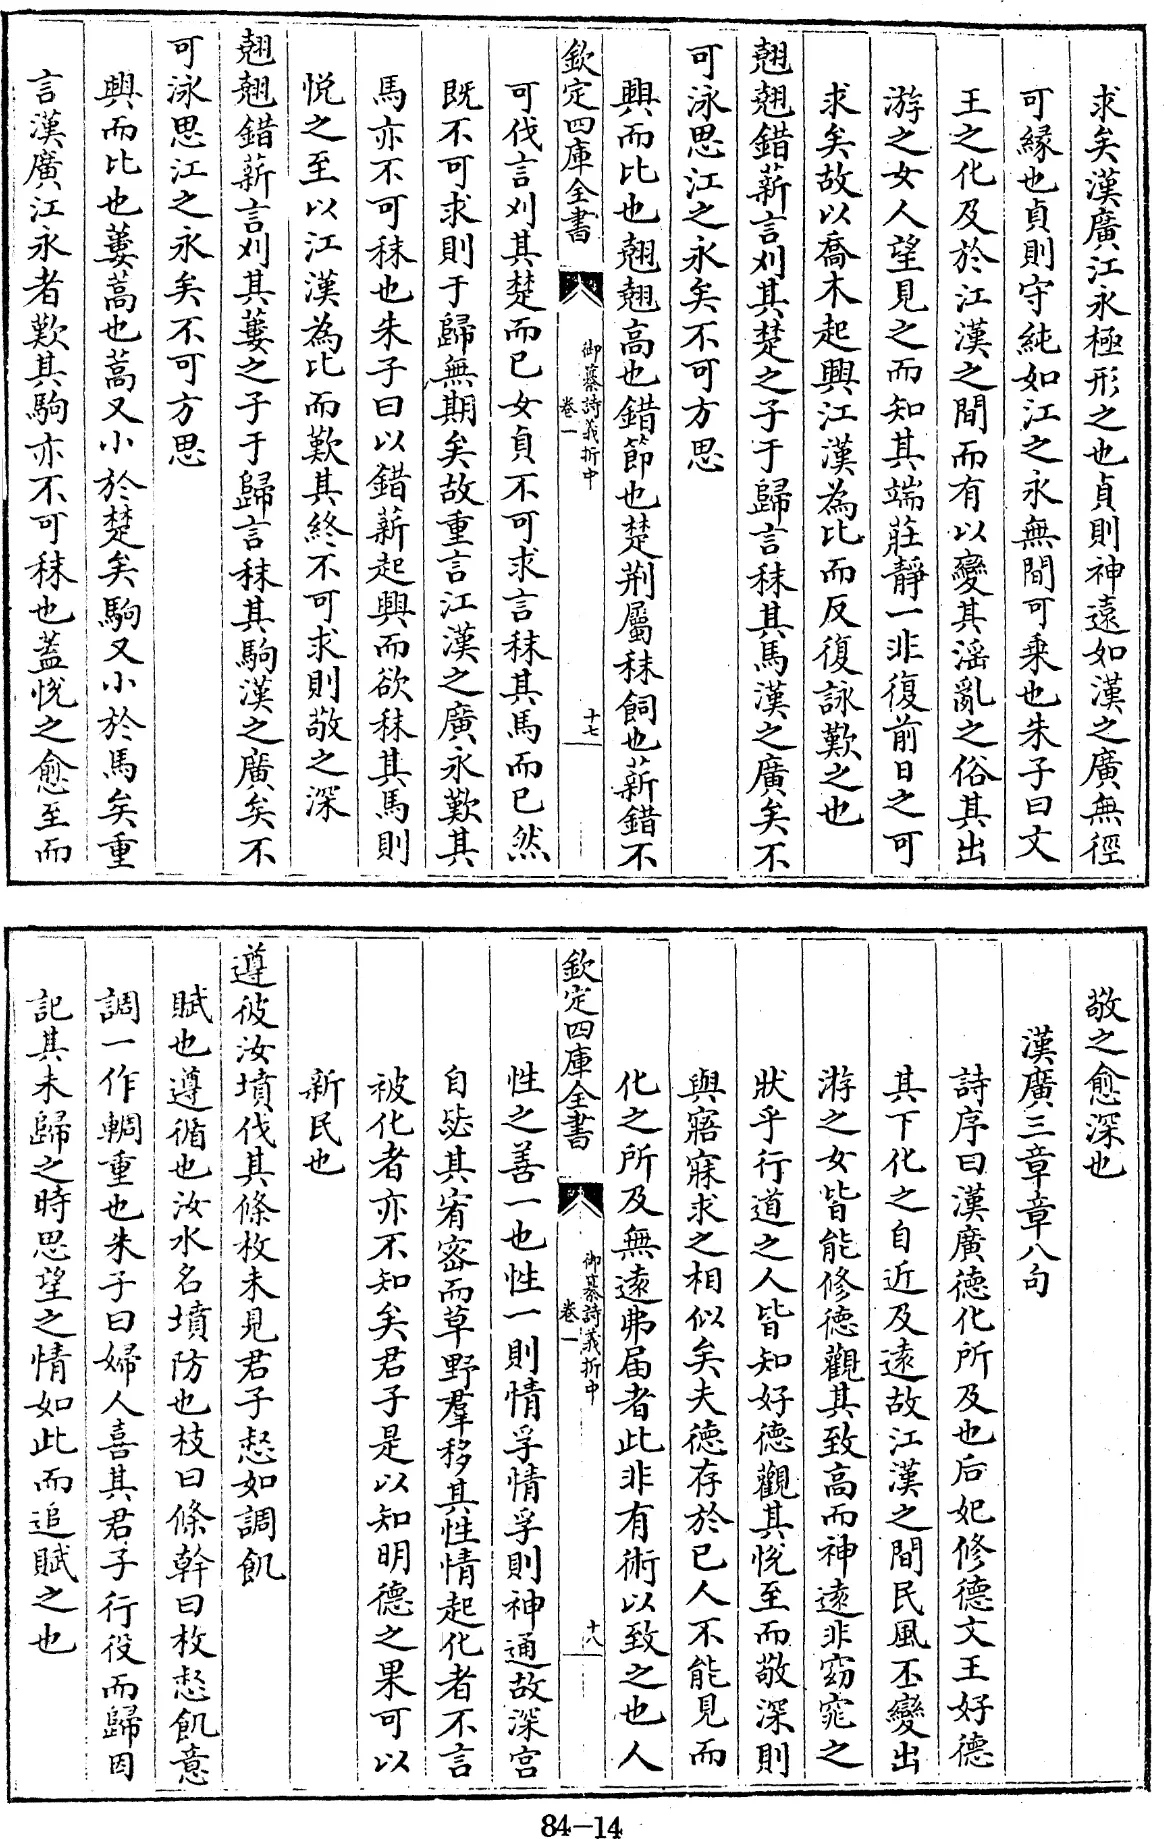 求矣漢廣江永極形之也貞則神遠如漢之廣無徑
可緣也貞則守純如江之永無間可乗也朱子曰文
王之化及於江漢之間而有以變其淫亂之俗其出
游之女人望見之而知其端莊靜一非復前日之可
求矣故以喬木起興江漢為比而反復詠歎之也
翹翹錯薪言刈其楚之子于歸言秣其馬漢之廣矣不
可泳思江之永矣不可方思
興而比也翹翹高也錯節也楚荆屬秣飼也薪錯不
欽定四庫全書
御纂詩義折中
卷一
十七
可伐言刈其楚而已女貞不可求言秣其馬而已然
既不可求則于歸無期矣故重言江漢之廣永歎其
馬亦不可秣也朱子曰以錯薪起興而欲秣其馬則
悦之至以江漢為比而歎其終不可求則敬之深
翹翹錯薪言刈其蔞之子于歸言秣其駒漢之廣矣不
可泳思江之永矣不可方思
興而比也蔞蒿也蒿又小於楚矣駒又小於馬矣重
言漢廣江永者歎其駒亦不可秣也蓋悅之愈至而
敬之愈深也
漢廣三章章八句
詩序曰漢廣德化所及也后妃修德文王好德
其下化之自近及遠故江漢之間民風丕變出
游之女皆能修德觀其致高而神遠非窈窕之
狀乎行道之人皆知好德觀其悦至而敬深則
與寤寐求之相似矣夫德存於已人不能見而
化之所及無遠弗届者此非有術以致之也人
欽定四庫全書
御纂詩義折中
卷一
十八
性之善一也性一則情孚情孚則神通故深宮
自毖其宥密而草野羣移其性情起化者不言
被化者亦不知矣君子是以知明德之果可以
新民也
遵彼汝墳伐其條枚未見君子惄如調飢
賦也遵循也汝水名墳防也枝曰條幹曰枚惄飢意
調一作輖重也朱子曰婦人喜其君子行役而歸因
記其未歸之時思望之情如此而追賦之也
84-14